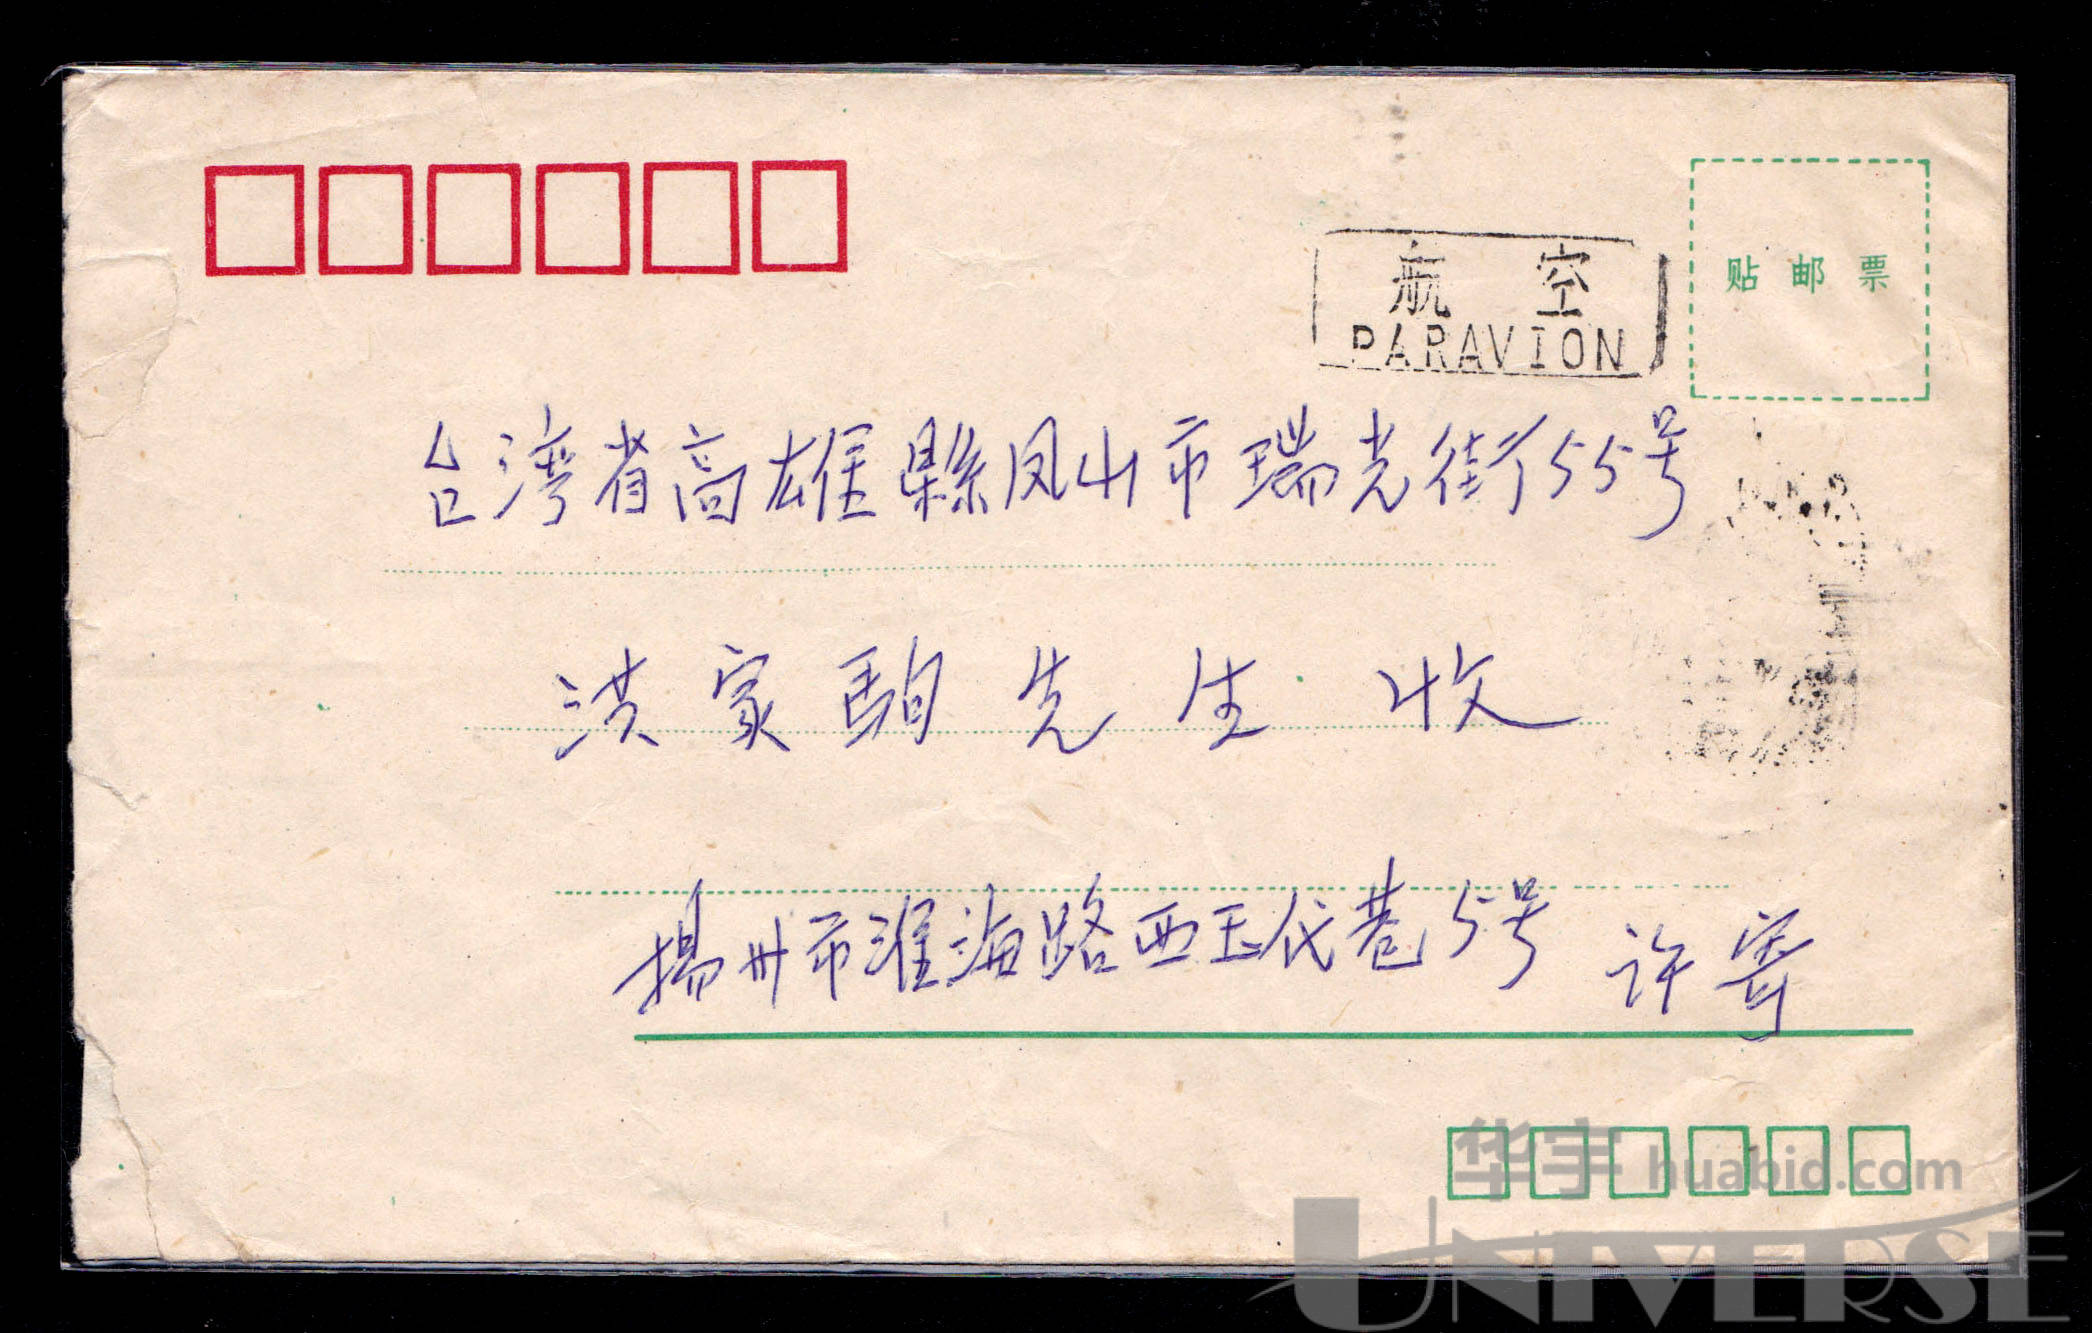 航 空
PARAVION
贴 邮 票
台湾省高雄縣凤山市瑞光街55号
洪家駒先生 收
揚州市淮海路西玉代巷5号 许寄
华宇 huabid.com
UNIVERSE